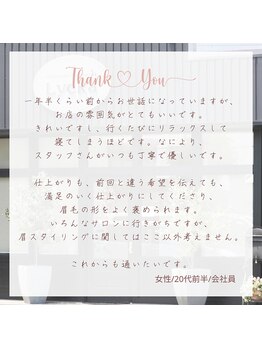 Thank You
一年半くらい前からお世話になっていますが、
お店の雰囲気がとてもいいです。
きれいですし、行くたびにリラックスして
寝てしまうほどです。なにより、
スタッフさんがいつも丁寧で優しいです。
仕上がりも、前回と違う希望を伝えても、
満足のいく仕上がりにしてくださり、
眉毛の形をよく褒められます。
いろんなサロンに行きがちですが、
眉スタイリングに関してはここ以外考えません。
これからも通いたいです。
女性/20代前半/会社員